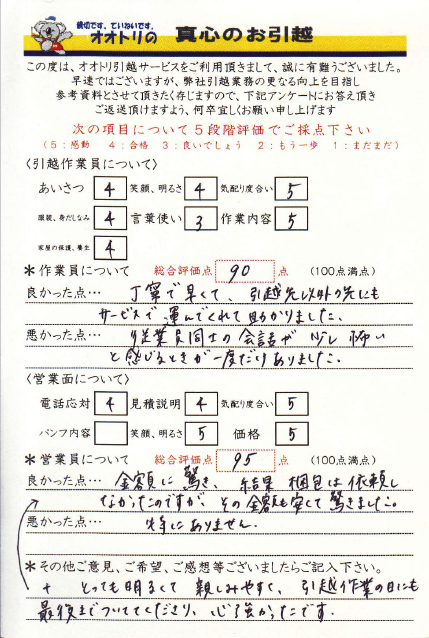 親切です。ていねいです。
オオトリの 真心のお引越
この度は、オオトリ引越サービスをご利用頂きまして、誠に有難うございました。
早速ではございますが、弊社引越業務の更なる向上を目指し
参考資料とさせて頂きたく存じますので、下記アンケートにお答え頂き
ご返送頂けますよう、何卒宜しくお願い申し上げます
次の項目について5段階評価でご採点下さい
(5:感動 4:合格 3:良いでしょう 2:もう一歩 1:まだまだ)
〈引越作業員について〉
あいさつ 4 笑顔、明るさ 4 気配り度合い 5
服装、身だしなみ 4 言葉使い 3 作業内容 5
家屋の保護、養生 4
＊作業員について 総合評価点 90 点 (100点満点)
良かった点… 丁寧で早くて、引越先以外の先にも
サービスで運んでくれて助かりました。
悪かった点… 従業員同士の会話が少し怖い
と感じるときが一度だけありました。
〈営業面について〉
電話応対 4 見積説明 4 気配り度合い 5
パンフ内容 笑顔、明るさ 5 価格 5
＊営業員について 総合評価点 95 点 (100点満点)
良かった点… 金額に驚き、結果梱包は依頼し
なかったのですが、その金額も安くて驚きました。
悪かった点… 特にありません。
＊その他ご意見、ご希望、ご感想等ございましたらご記入下さい。
+ とっても明るくて親しみやすく、引越作業の日にも
最後までついててくださり、心強かったです。